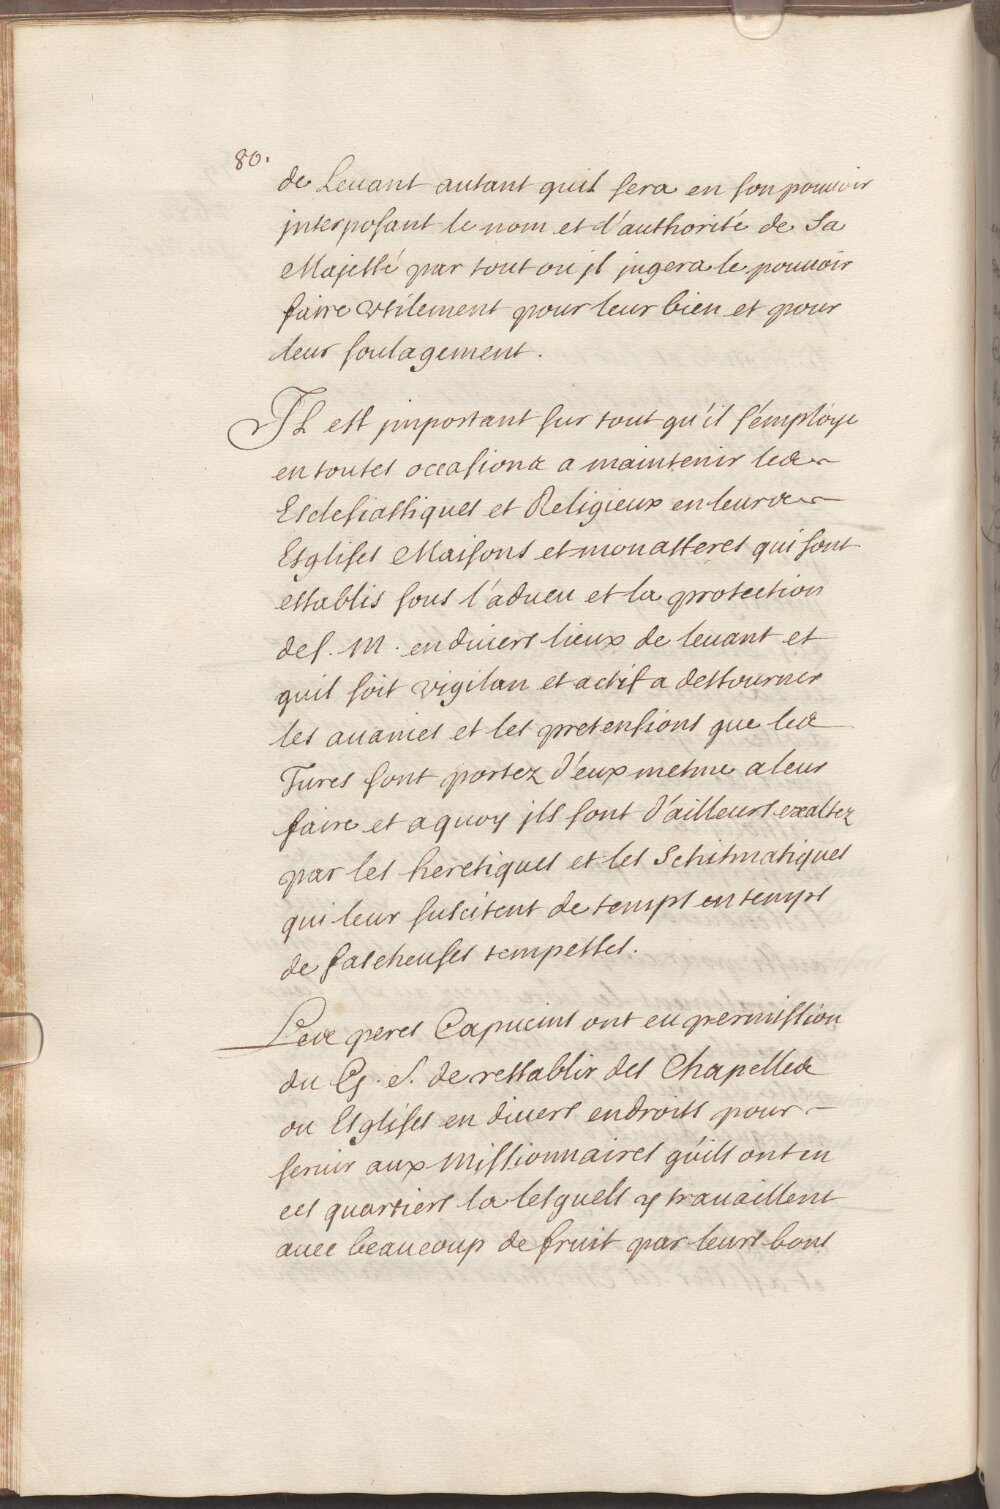 80.
de Leuant autant quil sera en son pouuoir
jnterposant le nom et l'authorité de Sa
Majesté par tout ou jl jugera le pouuoir
faire vtilement pour leur bien et pour
leur soulagement.
Il est jmportant sur tout qu'il s'employe
en toutes occasions a maintenir les
Esclesiastiques et Religieux en leurs
Esglises Maisons et monasteres qui sont
establis sous l'adueu et la protection
de S. M. en diuers lieux de leuant et
quil soit vigilan et actif a destourner
les auanies et les pretensions que les
Turcs sont portez d'eux mesme a leur
faire et a quoy jls sont d'ailleurs exaltez
par les heretiques et les Schismatiques
qui leur suscitent de temps en temps
de fascheuses tempestes.
Les peres Capucins ont eu permission
du G. S. de restablir des Chapelles
ou Esglises en diuers endroits pour
seruir aux Missionnaires qu'ils ont en
ces quartiers la lesquels y trauaillent
auec beaucoup de fruit par leurs bons